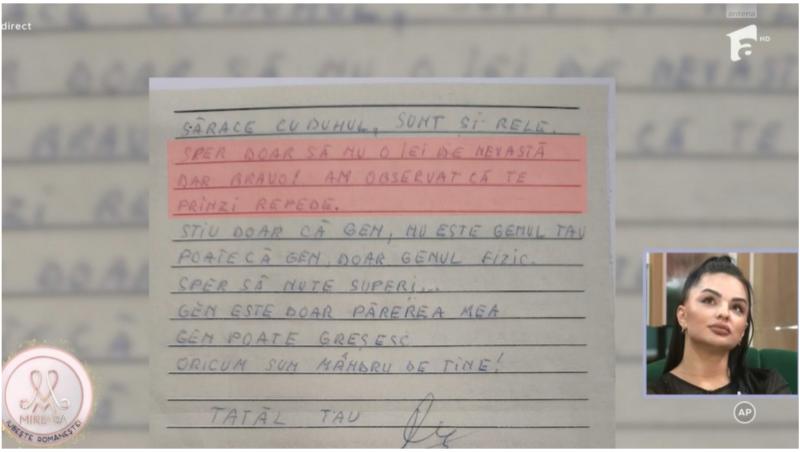 direct
antena
HD
SĂRACE CU DUHUL, SUNT ȘI RELE.
SPER DOAR SĂ NU O IEI DE NEVASTĂ
DAR BRAVO! AM OBSERVAT CĂ TE
PRINZI REPEDE.
STIU DOAR CĂ GEN, NU ESTE GENUL TAU
POATE CĂ GEN, DOAR GENUL FIZIC.
SPER SĂ NU TE SUPERI...
GEN ESTE DOAR PĂREREA MEA
GEN POATE GREȘESC
ORICUM SUNT MÂNDRU DE TINE!
TATĂL TAU
MIREASA
IUBEȘTE ROMÂNEȘTE!
AP